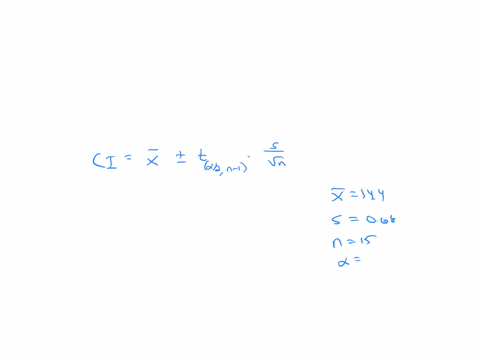 CI = x̄ ± t(α/2, n-1) · s/√n
x̄ = 14.4
s = 0.68
n = 15
α =